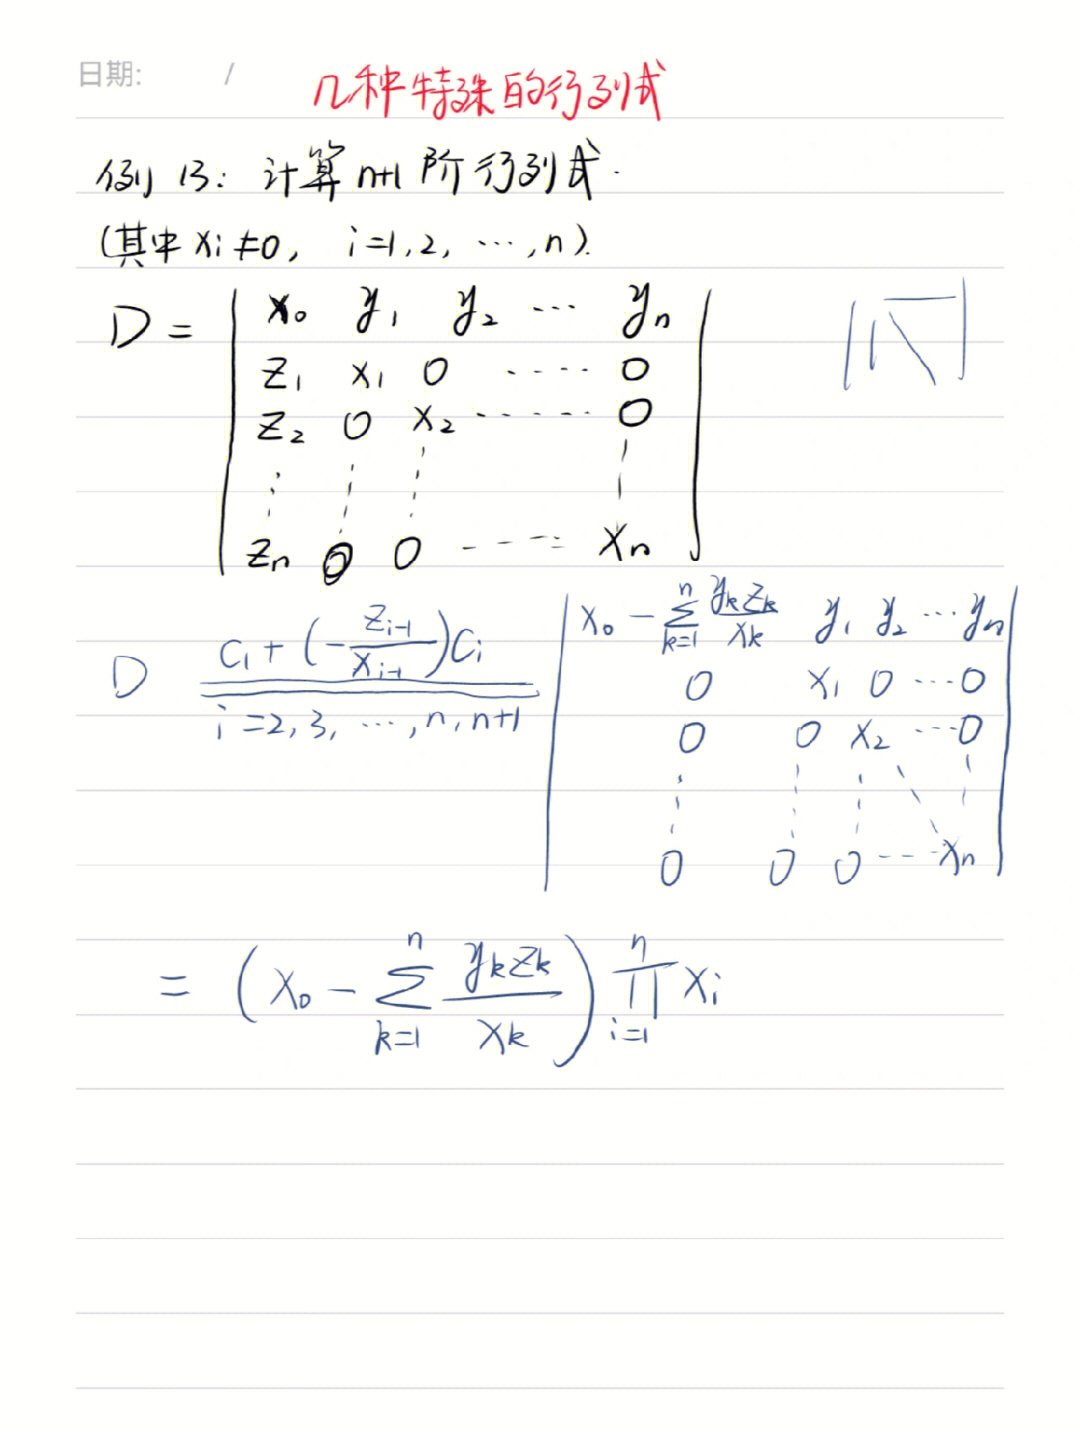 日期: /
几种特殊的行列式
例13: 计算n+1阶行列式.
(其中 xi≠0, i=1,2, ⋯,n).
D = | x₀ y₁ y₂ ⋯ yₙ |
| z₁ x₁ 0 ⋯⋯ 0 |
| z₂ 0 x₂ ⋯⋯ 0 |
| ⋮ ⋮ ⋮ ⋮ |
| zₙ 0 0 ⋯⋯ xₙ |
D = c₁+(-zᵢ₋₁/xᵢ₋₁)cᵢ
i=2,3, ⋯,n,n+1
| x₀ - Σₖ₌₁ⁿ yₖzₖ/xₖ y₁ y₂ ⋯ yₙ |
| 0 x₁ 0 ⋯ 0 |
| 0 0 x₂ ⋯ 0 |
| ⋮ ⋮ ⋮ ⋱ ⋮ |
| 0 0 0 ⋯ xₙ |
= (x₀ - Σₖ₌₁ⁿ yₖzₖ/xₖ) ∏ᵢ₌₁ⁿ xᵢ